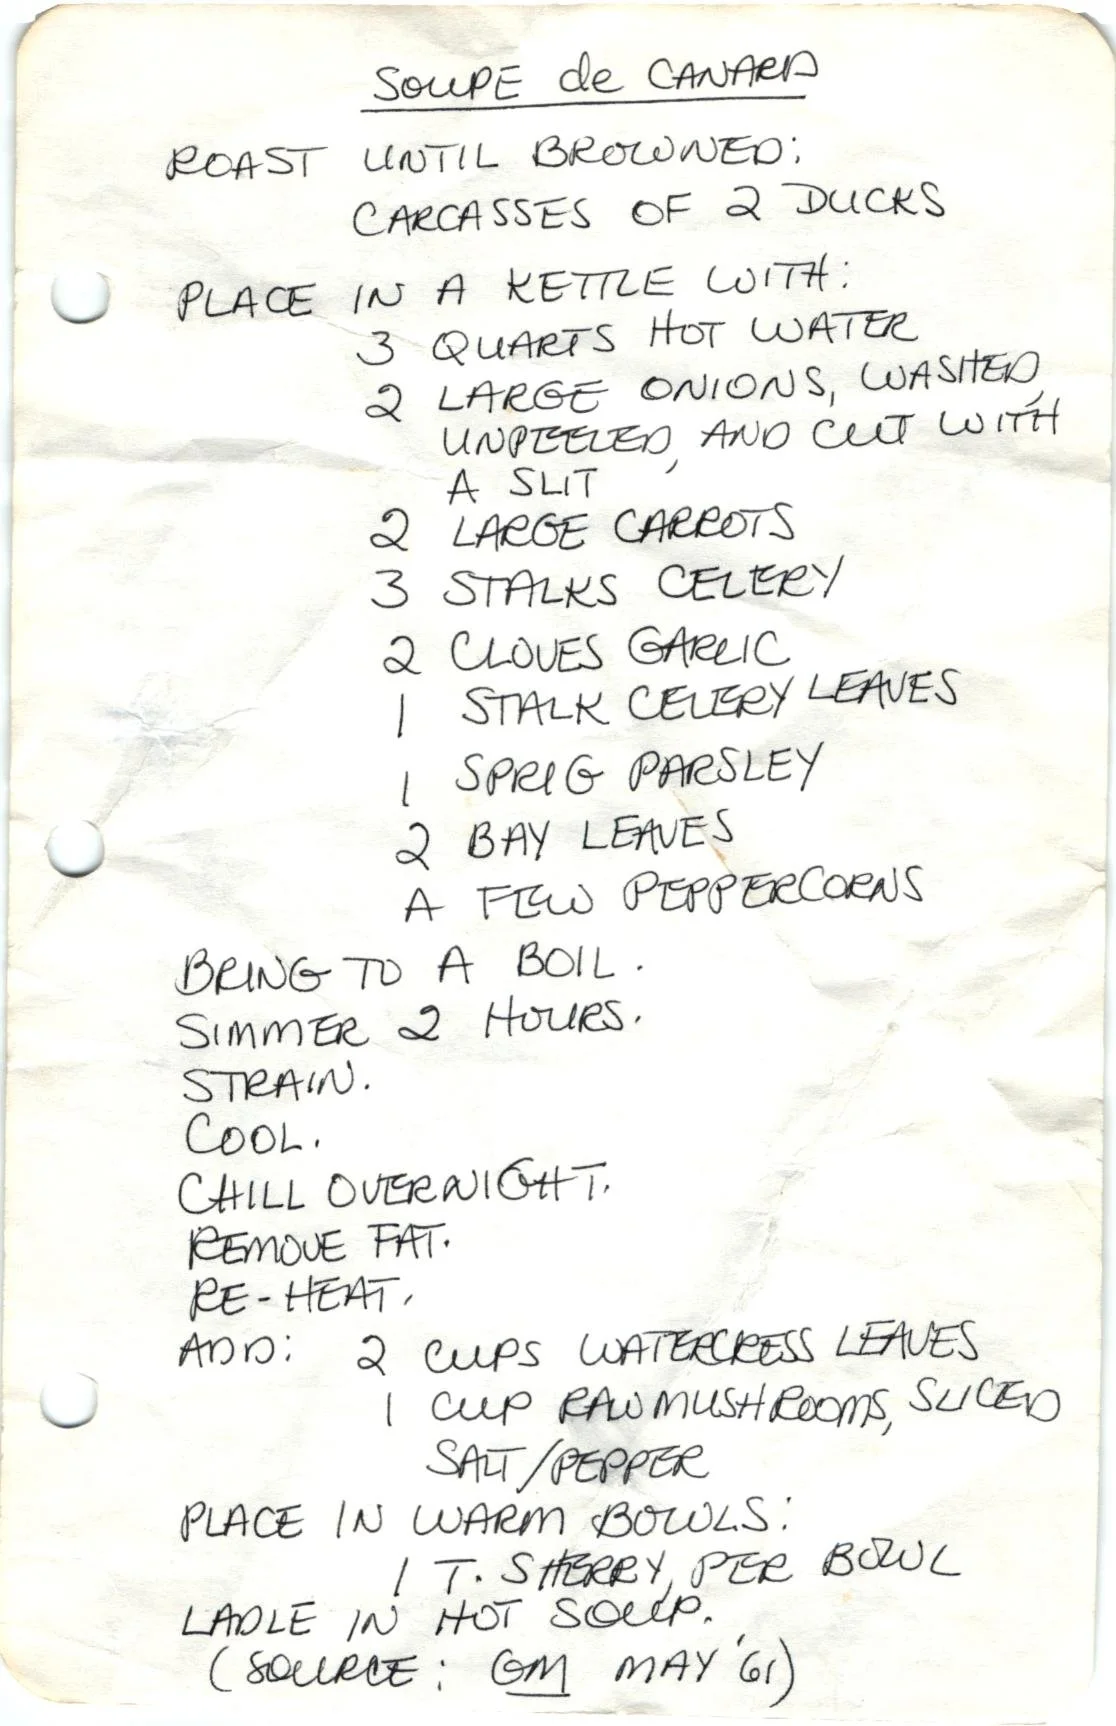 SOUPE de CANARD
ROAST UNTIL BROWNED:
CARCASSES OF 2 DUCKS
PLACE IN A KETTLE WITH:
3 QUARTS HOT WATER
2 LARGE ONIONS, WASHED,
UNPEELED, AND CUT WITH
A SLIT
2 LARGE CARROTS
3 STALKS CELERY
2 CLOVES GARLIC
1 STALK CELERY LEAVES
1 SPRIG PARSLEY
2 BAY LEAVES
A FEW PEPPERCORNS
BRING TO A BOIL.
SIMMER 2 HOURS.
STRAIN.
COOL.
CHILL OVERNIGHT.
REMOVE FAT.
RE-HEAT.
ADD: 2 CUPS WATERCRESS LEAVES
1 CUP RAW MUSHROOMS, SLICED
SALT/PEPPER
PLACE IN WARM BOWLS:
1 T. SHERRY, PER BOWL
LADLE IN HOT SOUP.
(SOURCE: GM MAY '61)